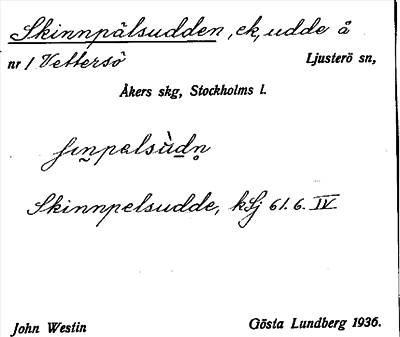 Skinnpälsudden, ek, udde å
nr 1 Vettersö Ljusterö sn,
Åkers skg, Stockholms l.
Skinnpelsudde, kSj 61.6. IV
John Westin Gösta Lundberg 1936.